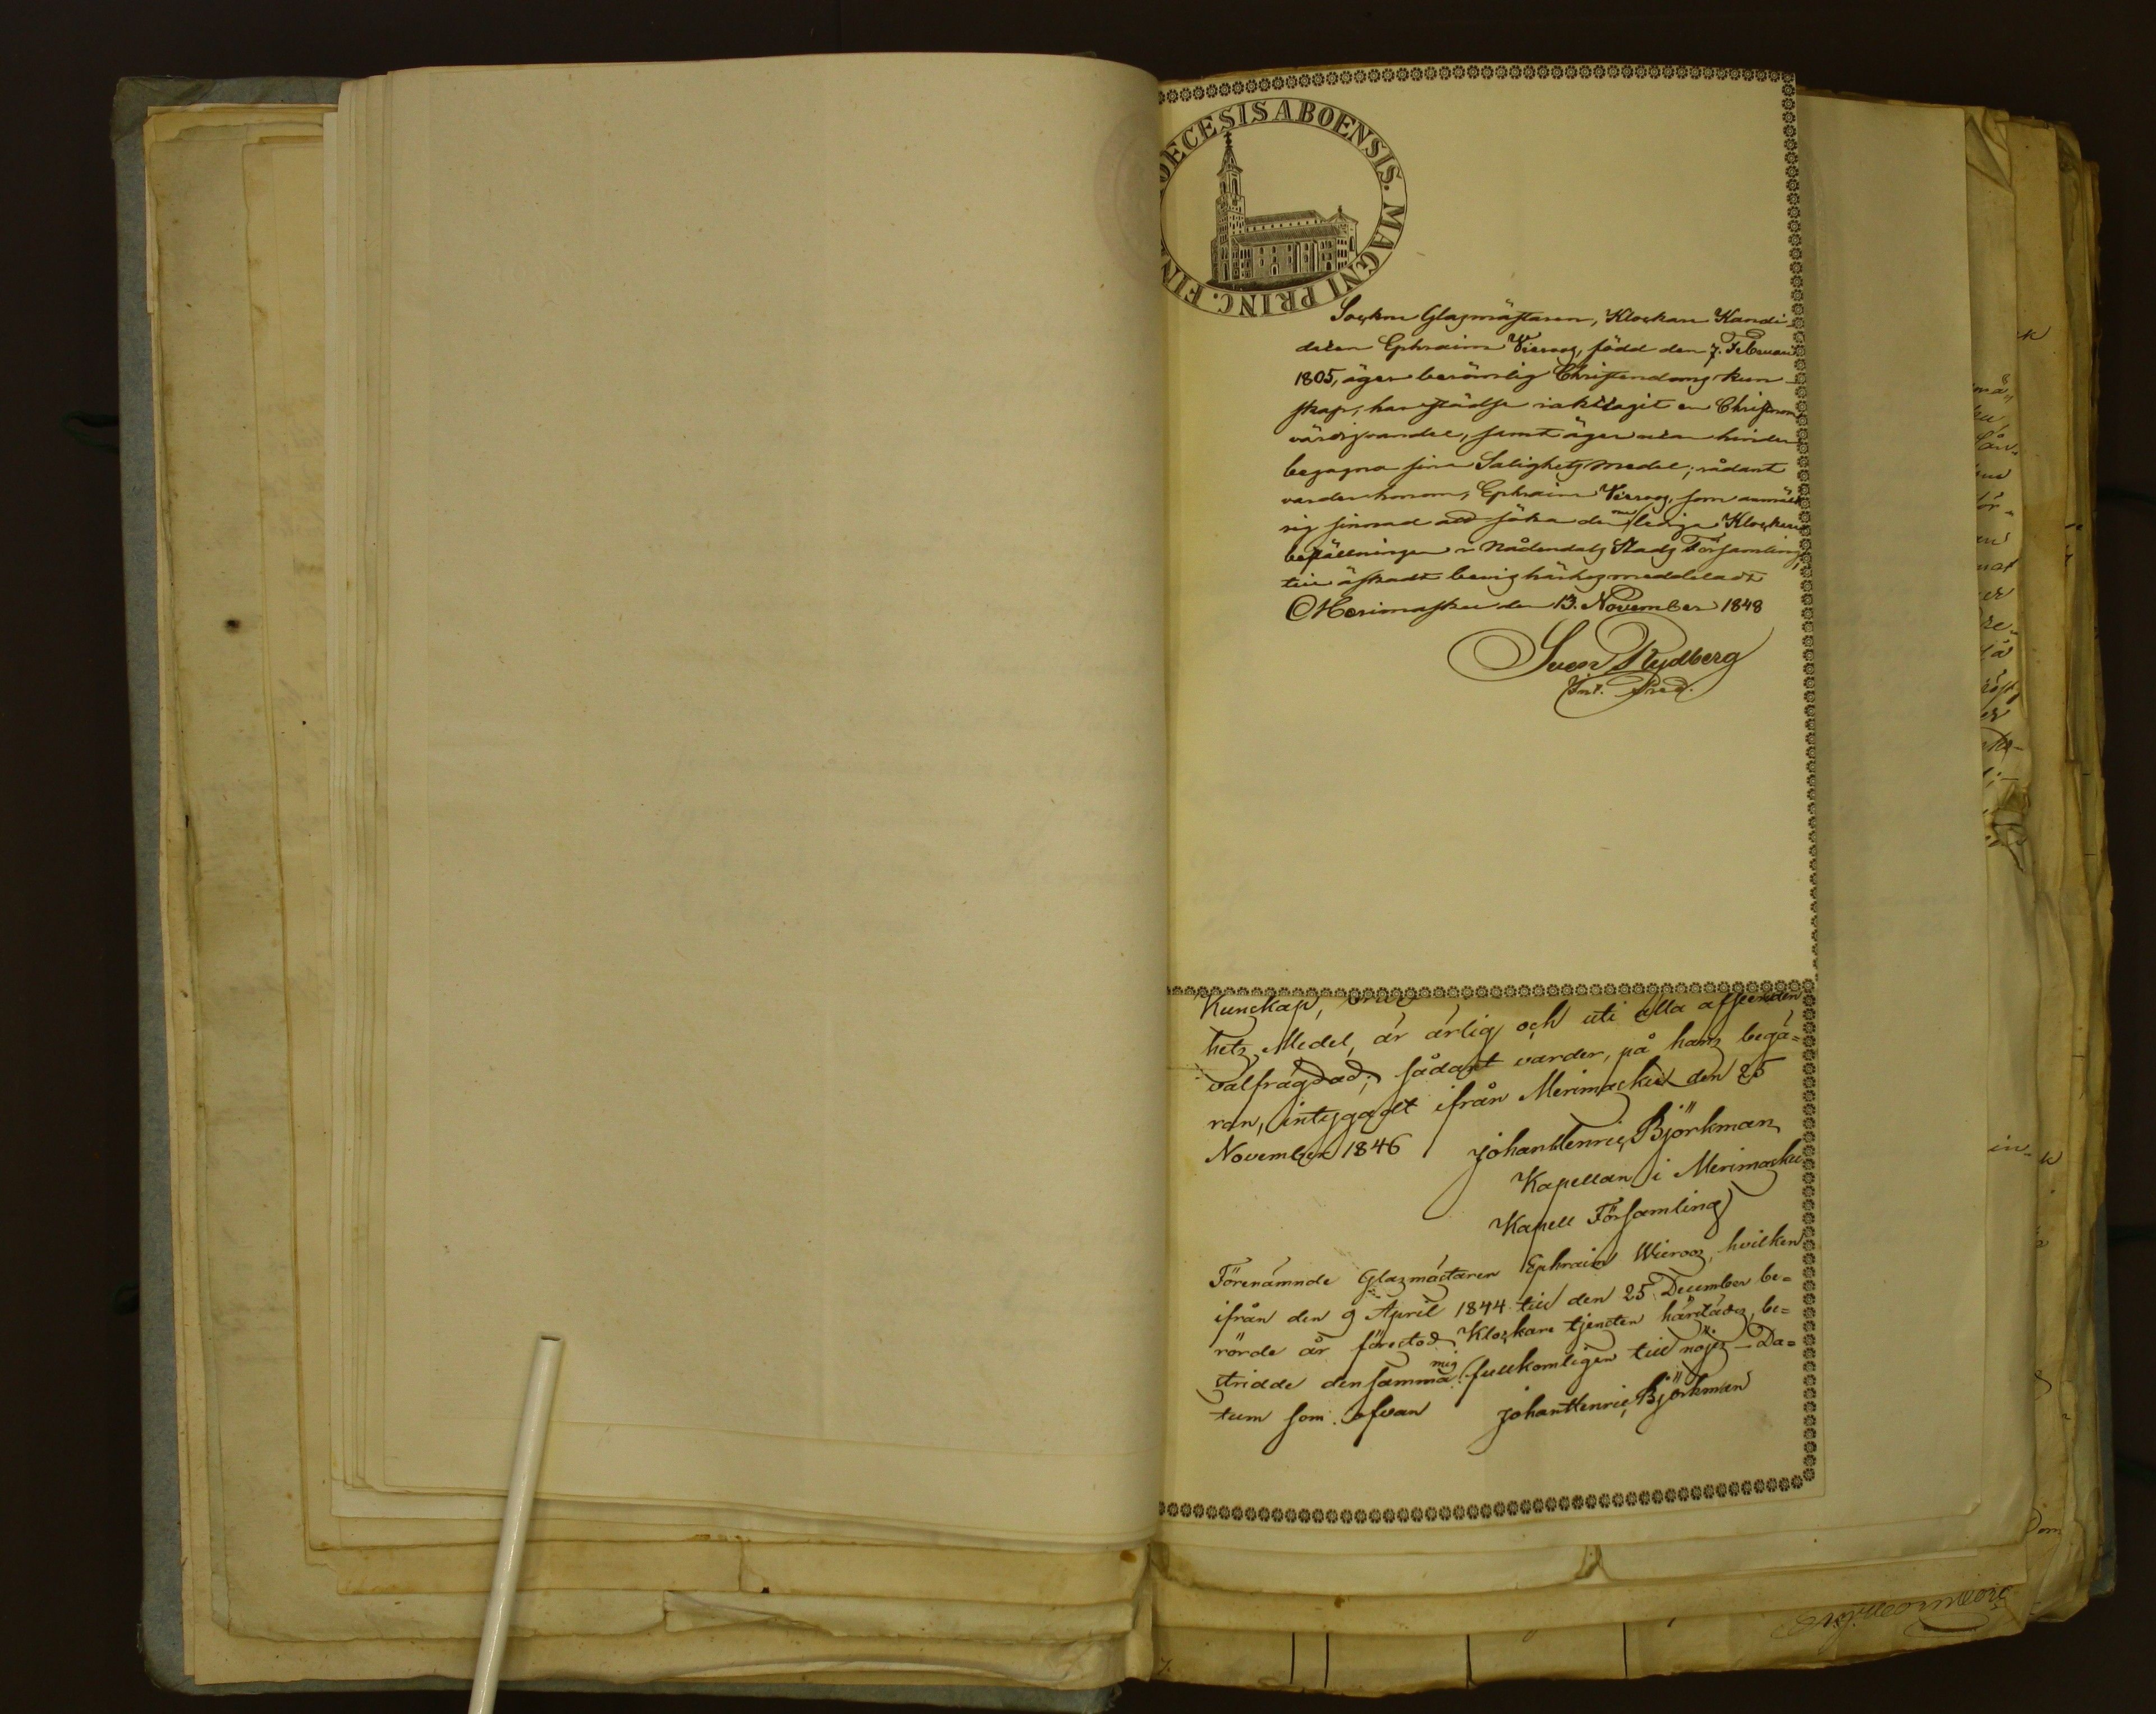 DIOECESIS ABOENSIS. MAGNI PRINC. FIN
Sockne Glasmästaren, Klockare Kandi-
daten Ephraim Wieroos, född den 7. Februari
1805, äger berömlig Christendoms kun-
skap, har städse iakttagit en Christnom
värdig vandel, samt äger utan hinder
begagna sina Salighets medel; sådant
varder honom, Ephraim Wieroos, som anmält
sig sinnad att söka den lediga Klockare
beställningen i Nådendals Stads Församling,
till äskadt bevis härhos meddeladt
Merimasku den 13. November 1848
Sven Rydberg
Vint. Pred.
Kunskap,
hets Medel, är ärlig och uti alla afseenden
välfrägdad; sådant varder, på hans begä=
ran, intygadt ifrån Merimasku den 25
November 1846 Johan Henric Björkman
Kapellan i Merimasku
Kapell Församling
Förenämnde Glasmästaren Ephraim Wieroos, hvilken
ifrån den 9 April 1844 till den 25 December be=
rörde år förestod Klockare tjensten härstädes, be=
stridde densamma mig fullkomligen till nöjes – Da=
tum som ofvan Johan Henric Björkman